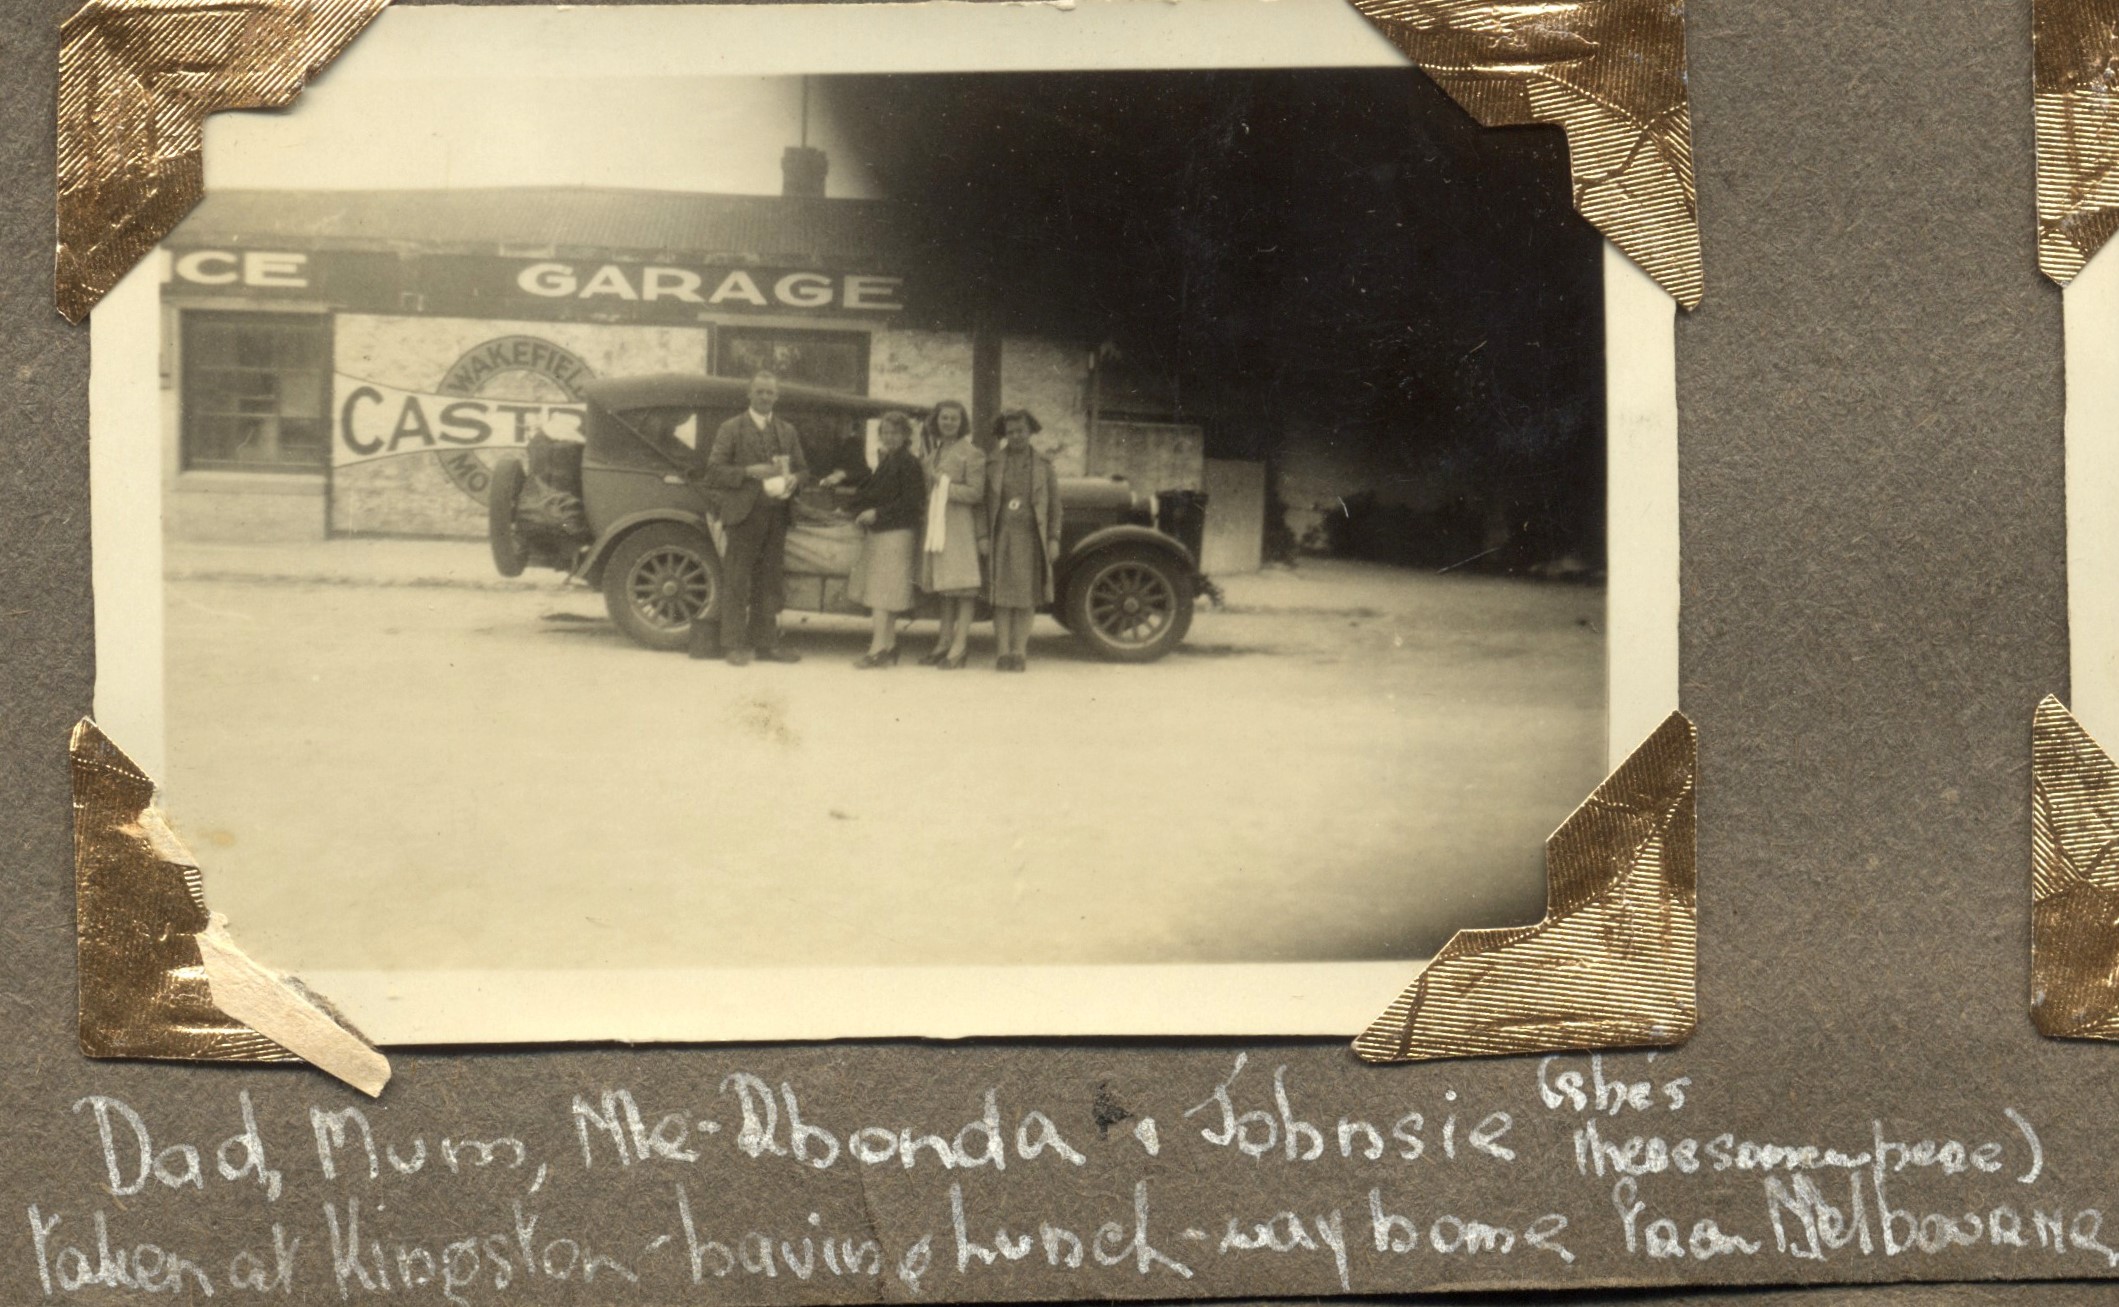 ICE GARAGE
WAKEFIEL
CASTR
MO
Dad, Mum, Me - Rhonda & Johnsie (she's
there somewhere)
taken at Kingston - having Lunch - way home from Melbourne